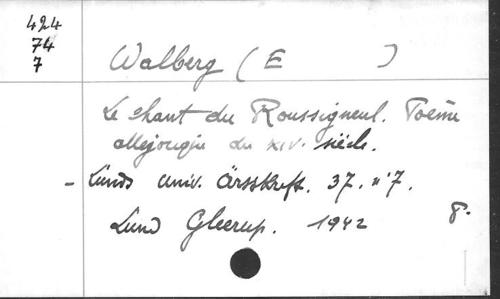 424
74
7
Walberg (E )
Le chant du Roussigneul. Poème
allégorique du XIV. siècle.
- Lunds Univ. Årsskrift. 37. nº7.
Lund Gleerup. 1942 8.